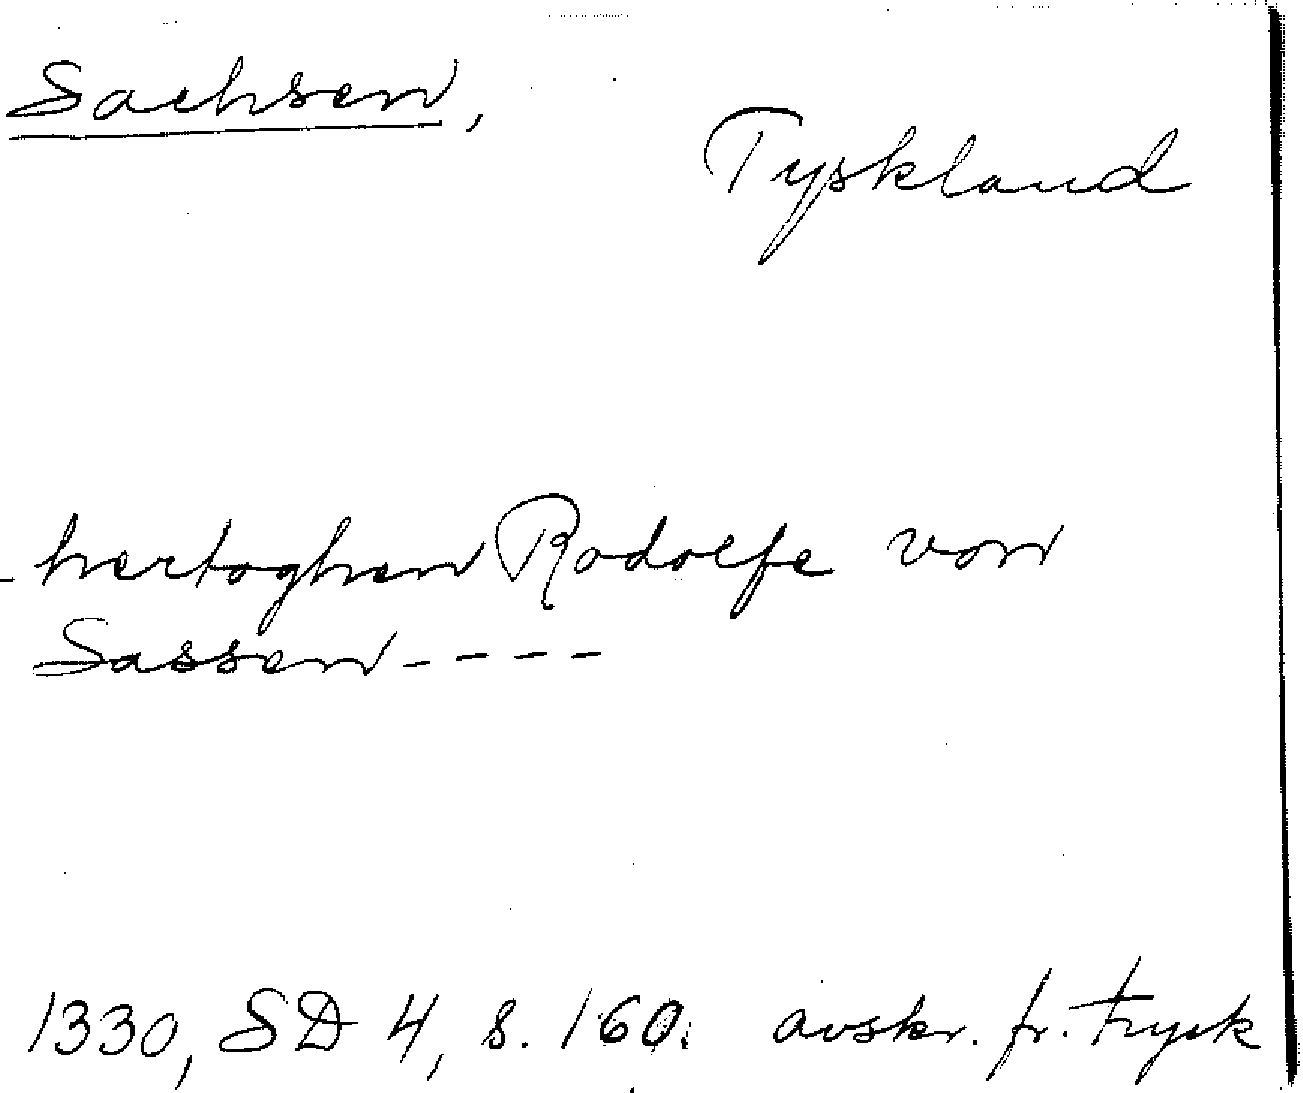 Sachsen,
Tyskland
- hertoghen Rodolfe von
Sassen - - - -
1330, SD 4, s. 160. avskr. fr. tryck